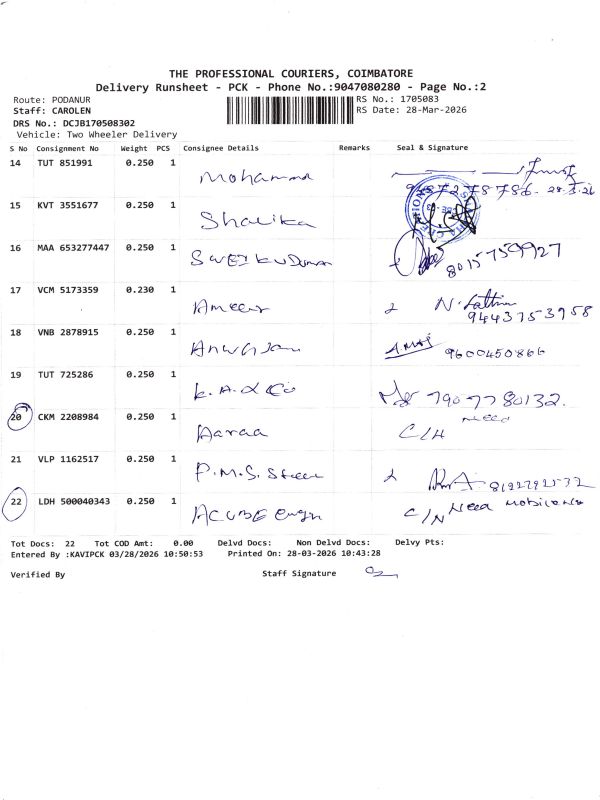 THE PROFESSIONAL COURIERS, COIMBATORE
Delivery Runsheet - PCK - Phone No.:9047080280 - Page No.:2
Route: PODANUR
RS No.: 1705083
Staff: CAROLEN
RS Date: 28-Mar-2026
DRS No.: DCJB170508302
Vehicle: Two Wheeler Delivery
S No Consignment No Weight PCS Consignee Details Remarks Seal & Signature
14 TUT 851991 0.250 1 Mohammad
15 KVT 3551677 0.250 1 Shalika
16 MAA 653277447 0.250 1 8015759927
17 VCM 5173359 0.230 1 Ameer 2 N. Fathima
9443753958
18 VNB 2878915 0.250 1 9600450866
19 TUT 725286 0.250 1 K.A. & Co 7907780132.
20 CKM 2208984 0.250 1 Aaraa C/H Need
21 VLP 1162517 0.250 1 P.M.S. Steel 2
22 LDH 500040343 0.250 1 ACUBE Engn C/N Need Mobile No
Tot Docs: 22 Tot COD Amt: 0.00 Delvd Docs: Non Delvd Docs: Delvy Pts:
Entered By :KAVIPCK 03/28/2026 10:50:53 Printed On: 28-03-2026 10:43:28
Verified By Staff Signature